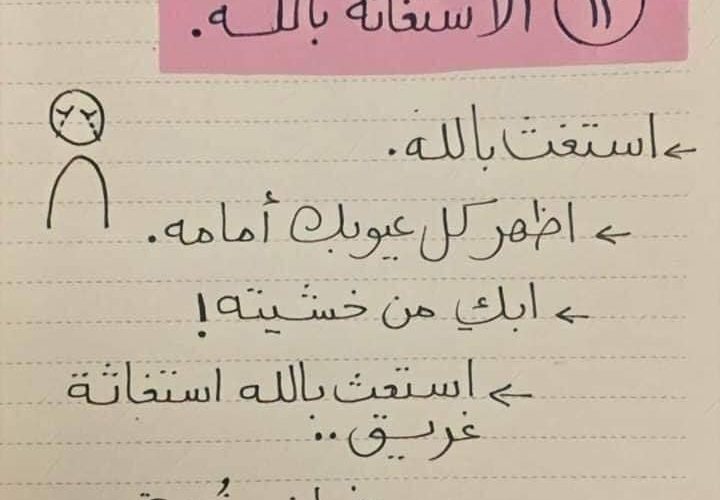 ١١ الاستغاثة بالله.
← استغث بالله.
← اظهر كل عيوبك أمامه.
← ابكِ من خشيته!
← استغث بالله استغاثة
غريق..